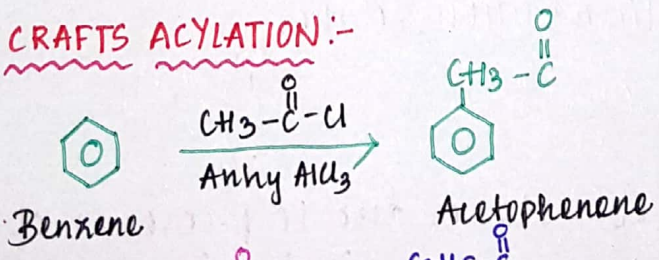 CRAFTS ACYLATION:-
O
||
CH3-C
O
||
CH3-C-Cl
Anhy AlCl3
Benzene
Acetophenone
O
||